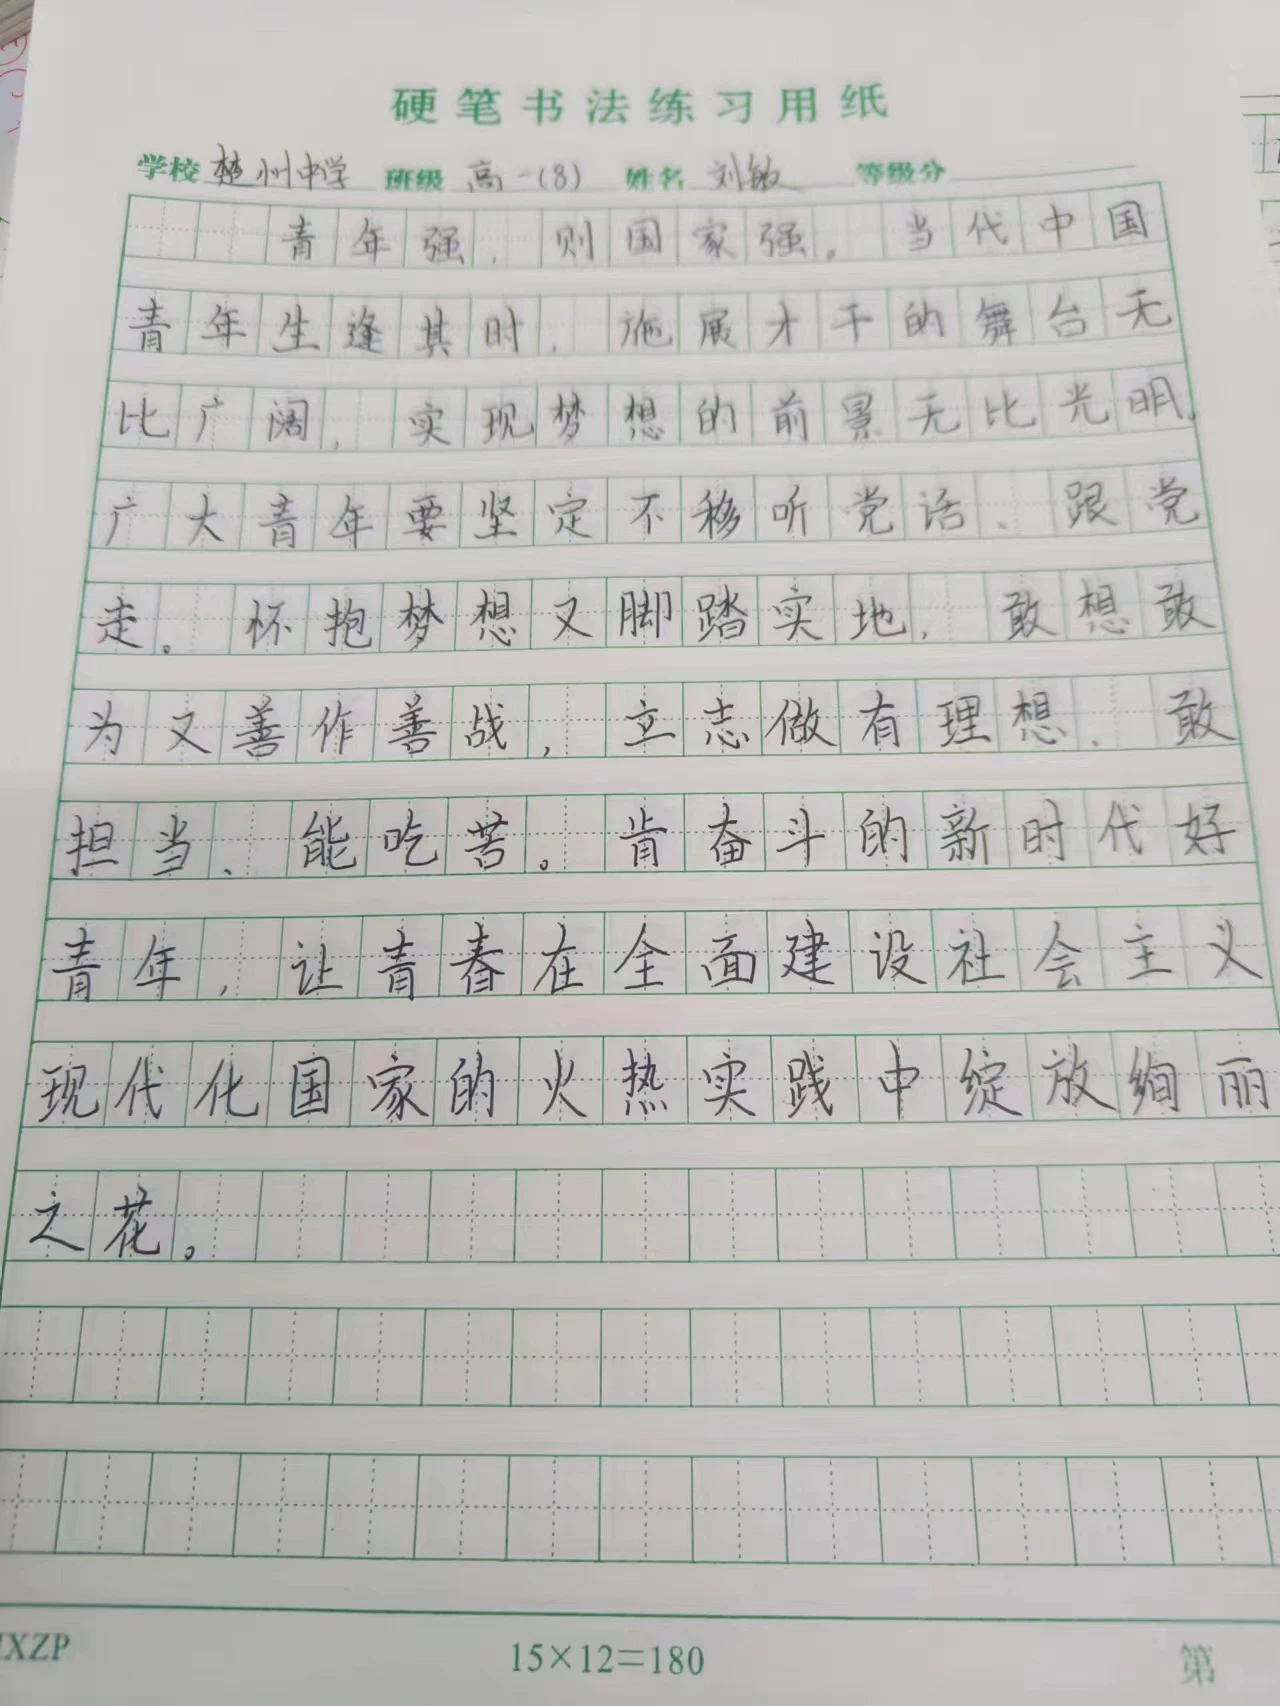 硬笔书法练习用纸
学校 楚州中学 班级 高一(8) 姓名 刘敏 等级分
青年强,则国家强。当代中国
青年生逢其时,施展才干的舞台无
比广阔,实现梦想的前景无比光明。
广大青年要坚定不移听党话、跟党
走。怀抱梦想又脚踏实地,敢想敢
为又善作善战,立志做有理想、敢
担当、能吃苦。肯奋斗的新时代好
青年,让青春在全面建设社会主义
现代化国家的火热实践中绽放绚丽
之花。
IXZP 15×12=180 第